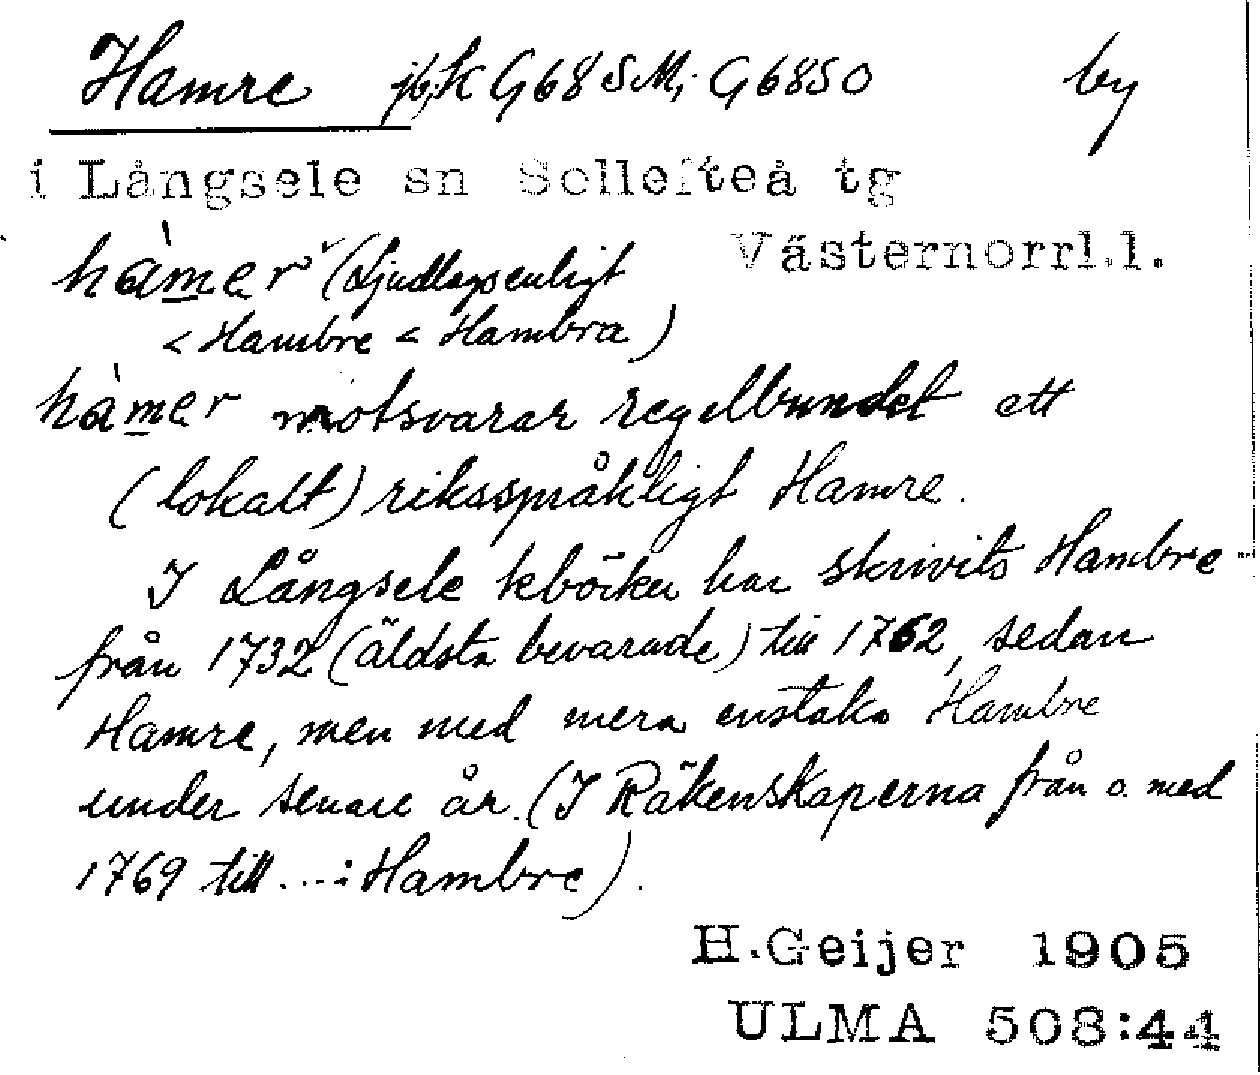 Hamre jb, k G68 SM; G6850 by
i Långsele sn Sollefteå tg
Västernorrl.l.
hàmer (Ljudlagsenligt
< Hambre < Hambra)
hàmer motsvarar regelbundet ett
(lokalt) riksspråkligt Hamre.
I Långsele kböcker har skrivits Hambre
från 1732 (äldsta bevarade) till 1762, sedan
Hamre, men med mera enstaka Hambre
under senare år. (I Räkenskaperna från o. med
1769 till ...: Hambre).
H.Geijer 1905
ULMA 508:44